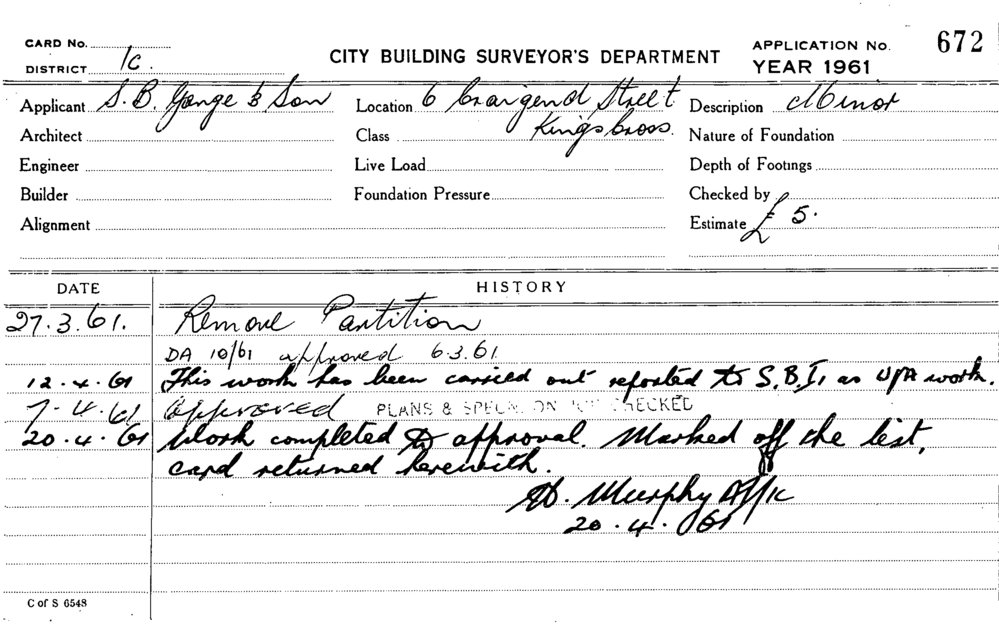 CARD No.
DISTRICT 1c.
CITY BUILDING SURVEYOR'S DEPARTMENT
APPLICATION No. 672
YEAR 1961
Applicant S. B. Gange & Son
Location 6 Craigend Street
Kings Cross.
Description Minor
Architect
Class
Nature of Foundation
Engineer
Live Load
Depth of Footings
Builder
Foundation Pressure
Checked by
Alignment
Estimate £ 5.
DATE
HISTORY
27.3.61. Remove Partition
DA 10/61 approved 6.3.61
12.4.61 This work has been carried out reported to S.B.I. as U/A work.
7-4.61 Approved PLANS & SPECN. ON JOB CHECKED
20.4.61 Work completed to approval. Marked off the list,
card returned herewith.
Murphy
20.4.61
C of S 6548